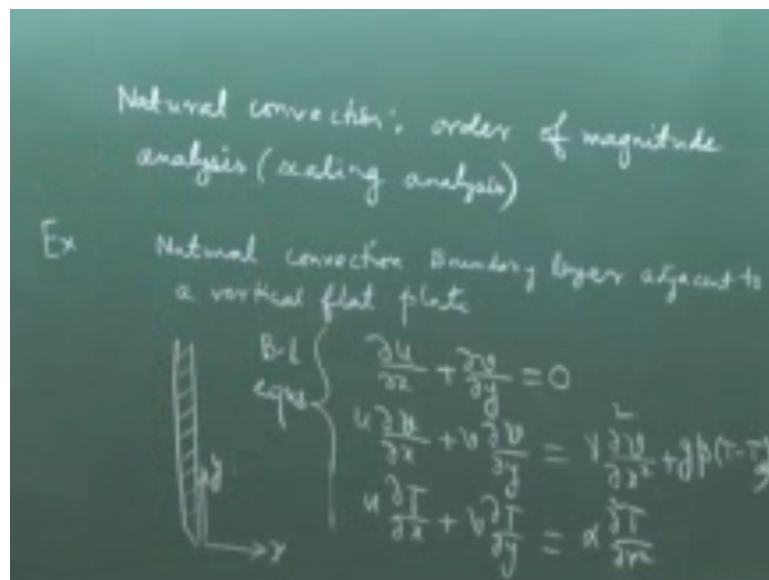 Natural convection: order of magnitude
analysis (scaling analysis)
Ex Natural convection Boundary layer adjacent to
a vertical flat plate
B-L
eqns
∂u/∂x + ∂v/∂y = 0
u ∂v/∂x + v ∂v/∂y = γ ∂²v/∂x² + gβ(T-T
u ∂T/∂x + v ∂T/∂y = α ∂²T/∂x²
y
x